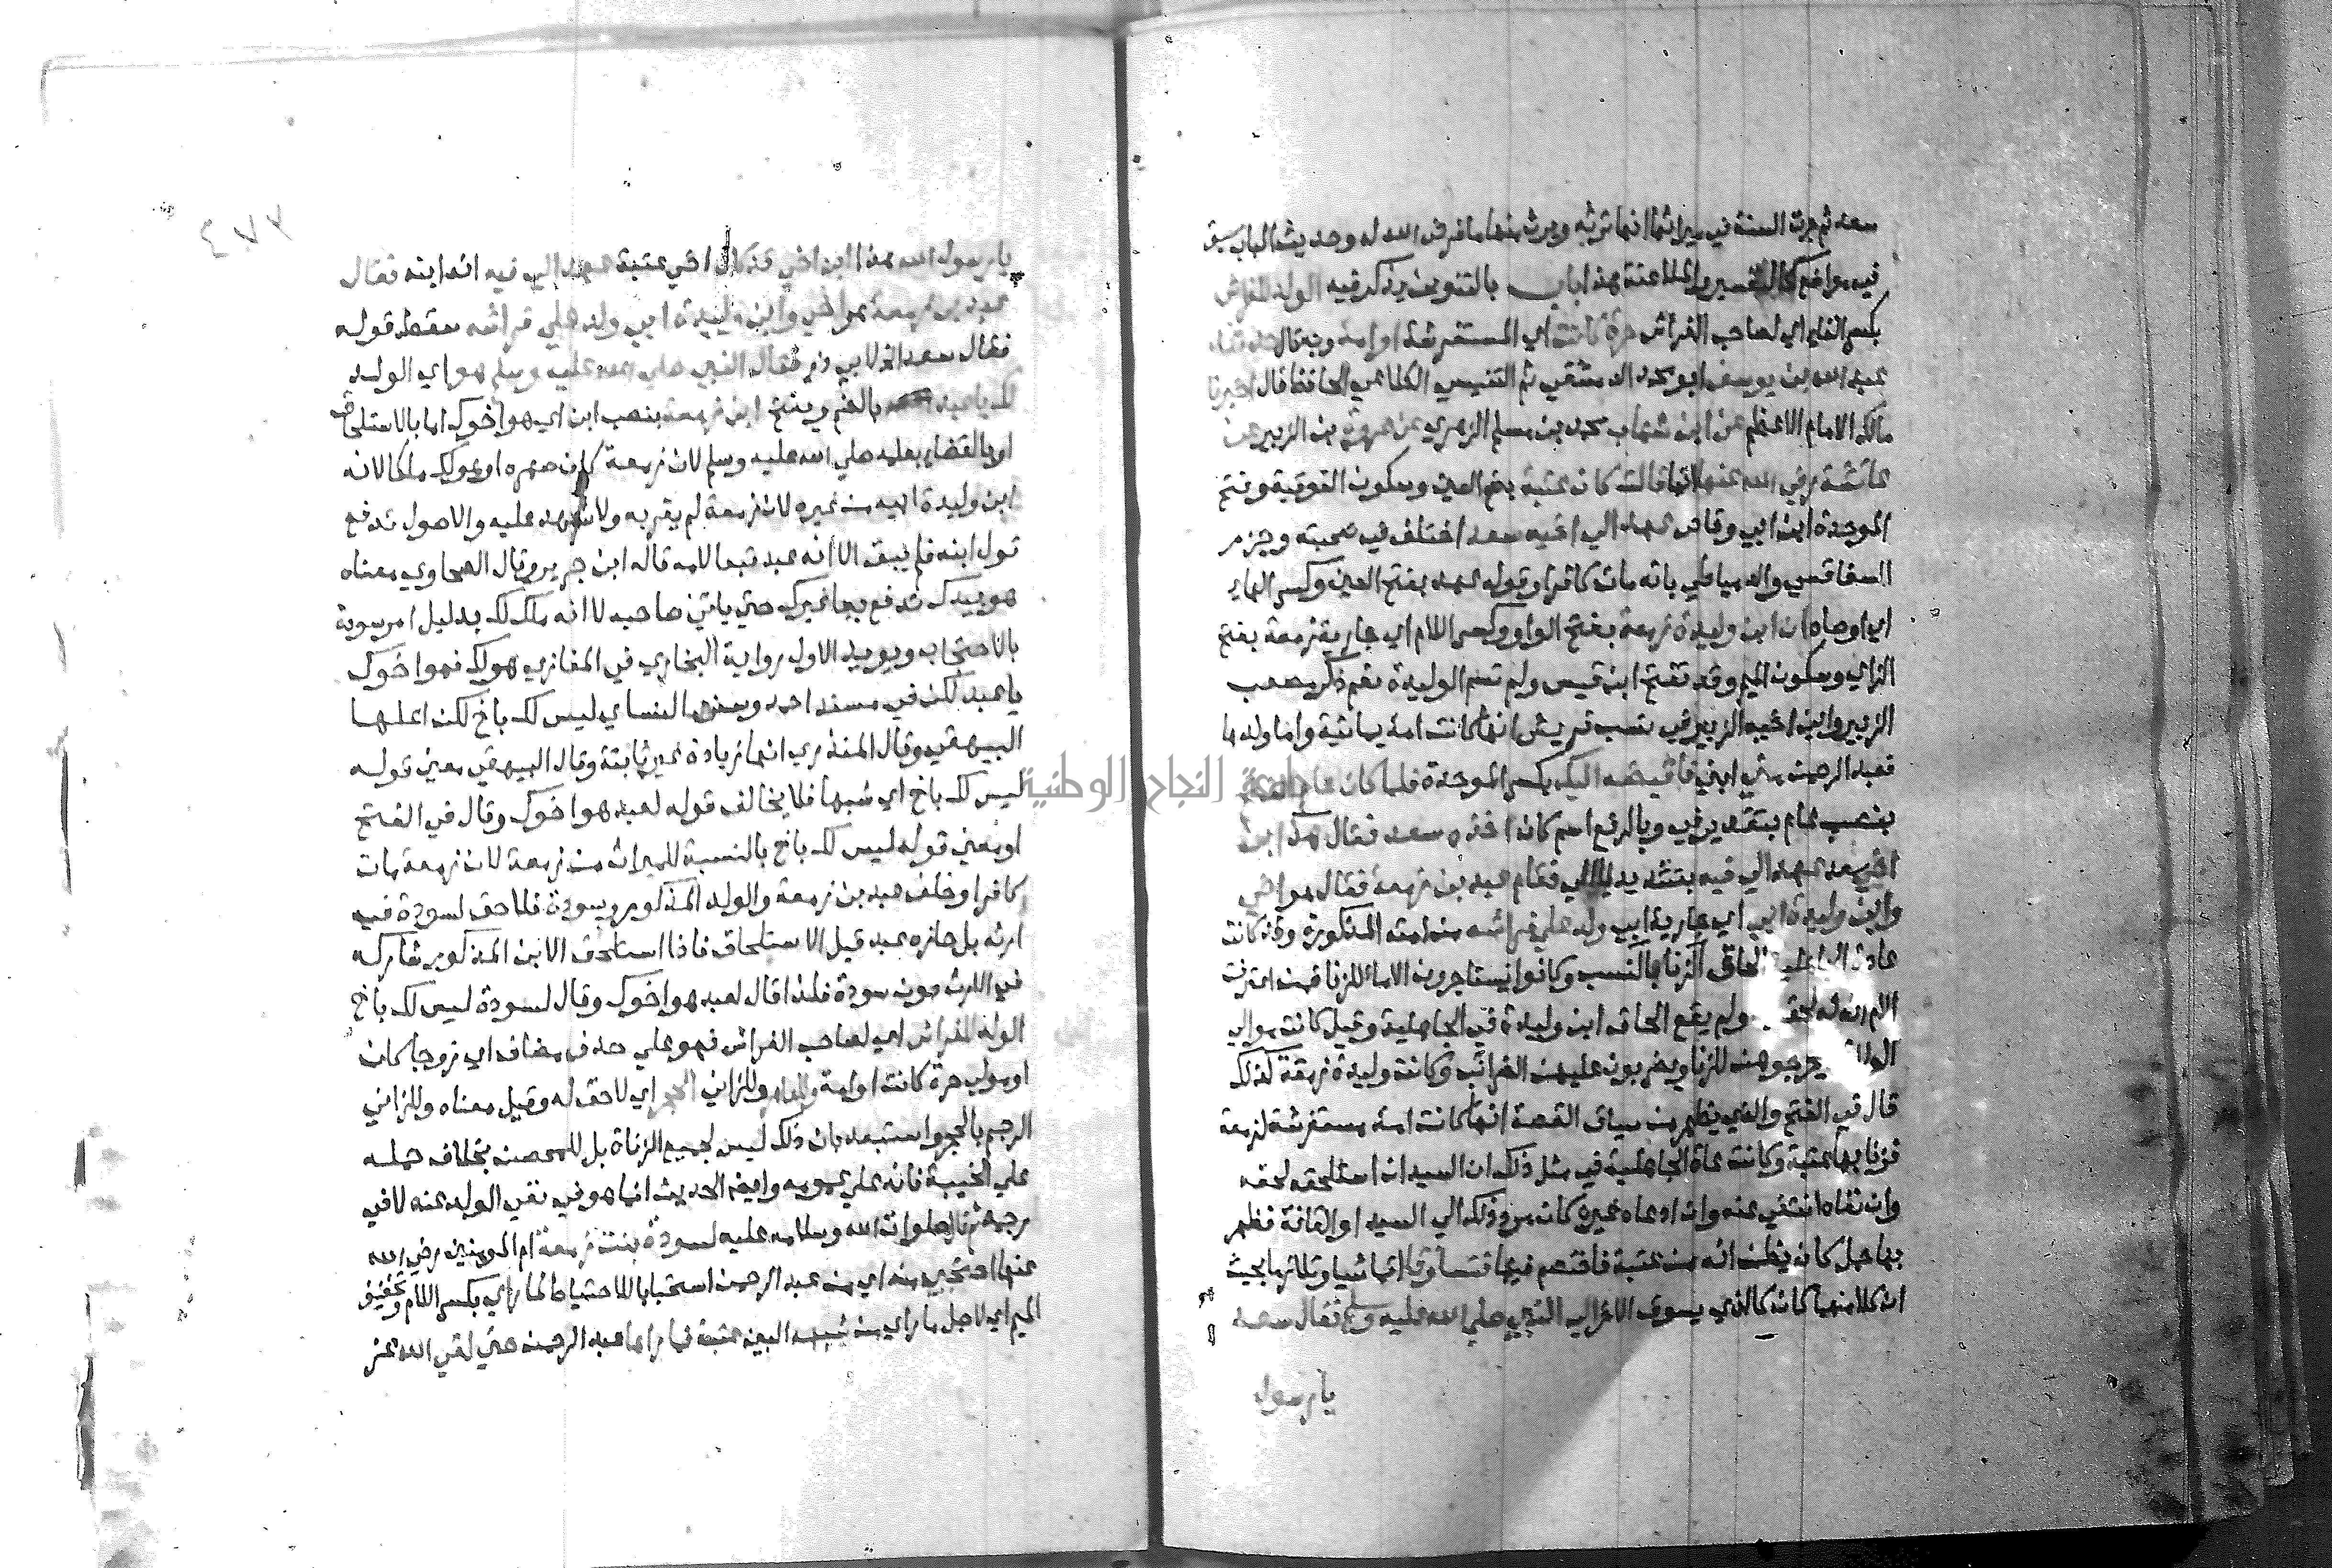 سعد ثم جرت السنة في ميراثها انها ترثه ويرث منها ما فرض الله له وحديث الباب سبق
في مواضع كالتفسير والملاعنة هذا باب بالتنوين يذكر فيه الولد للفراش
بكسر الفاء اي لصاحب الفراش حرة كانت اي المستفرشة او امة وبه قال حدثنا
عبد الله بن يوسف ابو محمد الدمشقي ثم التنيسي الكلاعي الحافظ قال اخبرنا
مالك الامام الاعظم عن ابن شهاب محمد بن مسلم الزهري عن عروة بن الزبير عن
عائشة رضي الله عنها انها قالت كان عتبة بضم العين وسكون الفوقية وفتح
الموحدة ابن ابي وقاص عهد الي اخيه سعد اختلف في صحبته وجزم
السفاقسي والدمياطي بانه مات كافرا وقوله عهد بفتح العين وكسر الهاء
اي اوصاه ان ابن وليدة زمعة بفتح الواو وكسر اللام اي جارية زمعة بفتح
الزاي وسكون الميم وقد تفتح ابن قيس ولم تسم الوليدة نعم ذكر مصعب
الزبير وابن اخيه الزبير في نسب قريش انها كانت امة يمانية واما ولدها
فعبد الرحمن مني ابني فاقبضه اليك بكسر الموحدة فلما كان عام الفتح
بنصب عام بتقدير في وبالرفع اسم كان اخذه سعد فقال هذا ابن
اخي سعد عهد الي فيه بتشديد الياء فقام عبد بن زمعة فقال هو اخي
وابن وليدة ابي اي جارية ابي ولد علي فراشه من امته المذكورة وقد كانت
عادة الجاهلية الحاق الزنا بالنسب وكانوا يستاجرون الاماء للزنا فمن اعترفت
الام انه له لحقه ولم يقع الحاق ابن وليدة في الجاهلية وقيل كانت موالي
يخرجوهن للزنا ويضربون عليهن الضرائب وكانت وليدة زمعة كذلك
قال في الفتح والذي يظهر من سياق القصة انها كانت امة مستفرشة لزمعة
فزنا بها عتبة وكانت عادة الجاهلية في مثل ذلك ان السيد ان استلحقه لحقه
وان نفاه انتفي عنه وان ادعاه غيره كان مرد ذلك الي السيد او القافة فظهر
بها حمل كان يظن انه من عتبة فاختصم فيها فتساوقا اي تماشيا وتلازما بحيث
ان كلا منهما كان كالذي يسوق الاخر الي النبي صلي الله عليه وسلم فقال سعد
يا رسول
٤٧٣
يا رسول الله هذا ابن اخي قد كان اخي عتبة عهد الي فيه انه ابنه فقال
عبد بن زمعة هو اخي وابن وليدة ابي ولد علي فراشه سقط قوله
فقال سعد الخ لابي ذر فقال النبي صلي الله عليه وسلم هو اي الولد
لك يا عبد بالضم ويفتح ابن زمعة بنصب ابن اي هو اخوك اما بالاستلحاق
او بالقضاء بعلمه صلي الله عليه وسلم لان زمعة كان صهره او هو لك ملكا لانه
ابن وليدة ابيه من غيره لان زمعة لم يقر به ولا شهد عليه والاصول تدفع
قول ابنه فلم يبق الا انه عبد تبعا لامه قاله ابن جرير وقال الطحاوي معناه
هو بيدك تدفع بها غيرك حتي ياتي صاحبه لا انه ملك لك بدليل امر سودة
بالاحتجاب ويويد الاول رواية البخاري في المغازي هو لك فهو اخوك
يا عبد لكن في مسند احمد وسنن النساي ليس لك باخ لكن اعلها
البيهقي وقال المنذري انها زيادة غير ثابتة وقال البيهقي معني قوله
ليس لك باخ اي شبها فلا يخالف قوله لعبد هو اخوك وقال في الفتح
او معني قوله ليس لك باخ بالنسبة للميراث من زمعة لان زمعة مات
كافرا وخلف عبد بن زمعة والولد المذكور وسودة فلا حق لسودة في
ارثه بل حازه عبد قبل الاستلحاق فاذا استلحق الابن المذكور شاركه
في الارث دون سودة فلذا قال لعبد هو اخوك وقال لسودة ليس لك باخ
الولد للفراش اي لصاحب الفراش فهو علي حذف مضاف اي زوجا كان
او مولي حرة كانت او امة وللعاهر وللزاني الحجر اي لا حق له وقيل معناه وللزاني
الرجم بالحجر واستبعد بان ذلك ليس لجميع الزناة بل للمحصن بخلاف حمله
علي الخيبة فانه علي عمومه وايضا الحديث انما هو في نفي الولد عنه لا في
رجمه ثم قال صلوات الله وسلامه عليه لسودة بنت زمعة ام المومنين رضي الله
عنها احتجبي منه اي من عبد الرحمن استحبابا للاحتياط لما راي بكسر اللام وتخفيف
الميم اي لاجل ما راي من شبهه البين عتبة فما راها عبد الرحمن حتي لقي الله عز